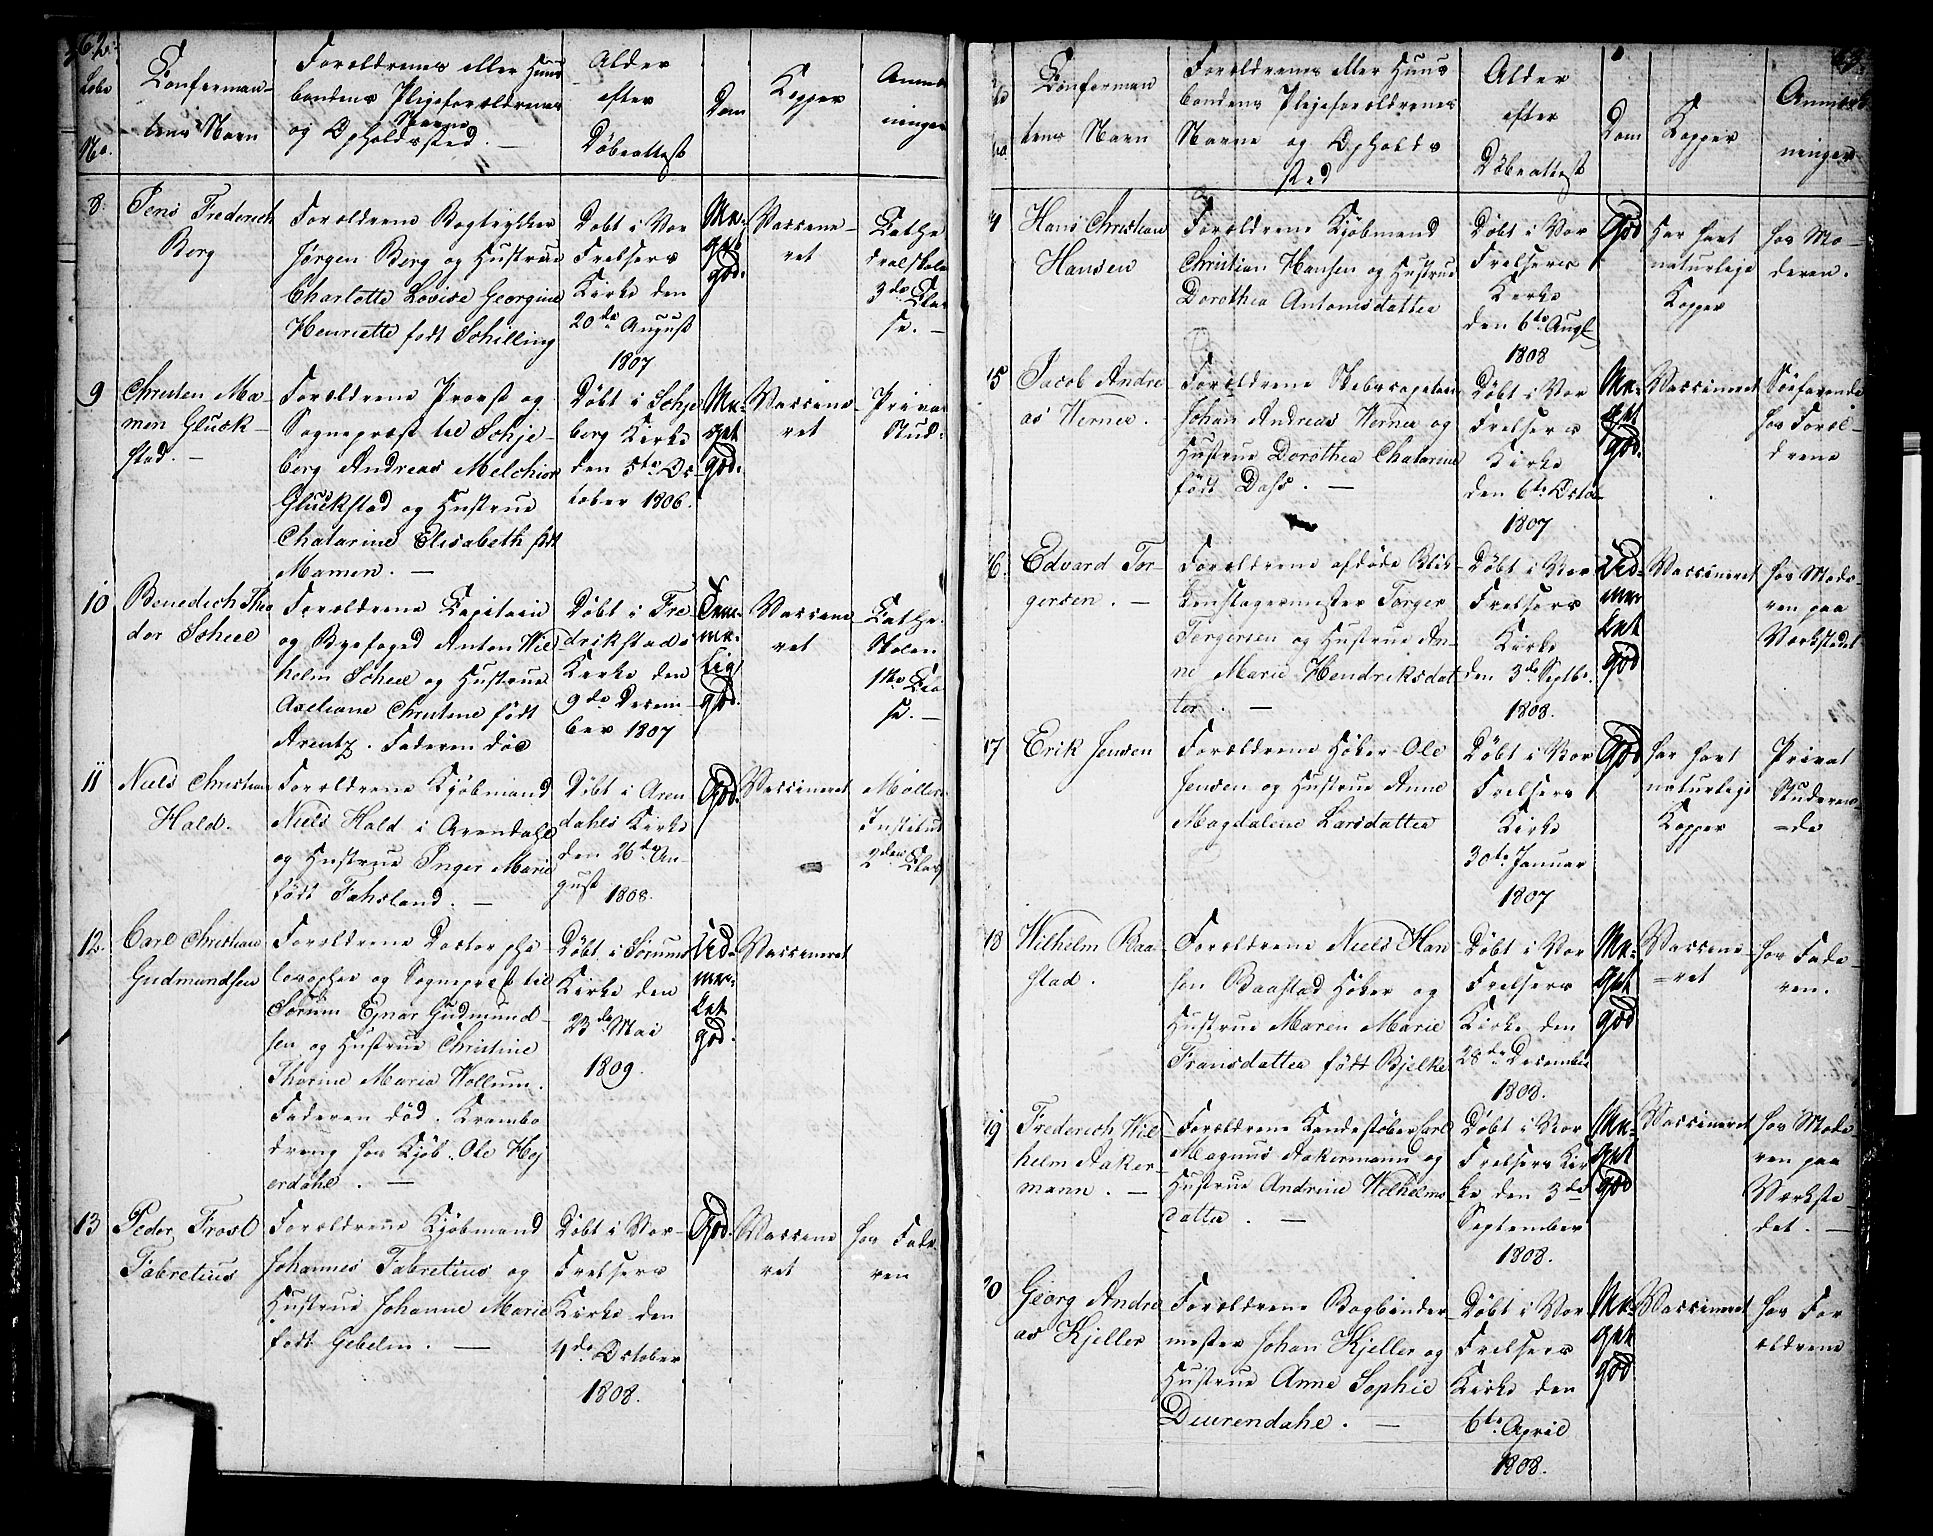 62.
Løbe
No.
Confirman-
tens Navn
Forældrenes eller Huus
bondens Plejeforældrenes
Navne
og Opholdssted. —
Alder
efter
Døbeattest
Dom
Kopper
Anmærk
ninger
8.
Jens Frederich
Berg
Forældrene Bogtrykker
Jørgen Berg og Hustrue
Charlotte Lovise Georgine
Henriette født Schilling
Døbt i Vor
Frelsers
Kirke den
20de August
1807
Me-
get
god.
Vaccine-
ret
Cathe
dralskolen
3die Clas
se. —
9
Christen Ma-
men Glück-
stad. —
Forældrene Provst og
Sognepræst til Schje-
berg Andreas Melchior
Glückstad og Hustrue
Chatarine Elisabeth født
Mamen. —
Døbt i Schje
berg Kirke
den 5te Oc-
tober 1806.
Me-
get
god.
Vaccine-
ret
Privat
Stud.
10
Benedich Theo
dor Scheel
Forældrene Capitain
og Byefoged Anton Wil
helm Scheel og Hustrue
Axeliane Christine født
Arentz. Faderen død
Døbt i Fre
drikstads
Kirke den
9de Decem-
ber 1807
Tem-
me-
lig
god.
Vaccine-
ret
Cathe.
Skolen
1ste Clas
se. —
11
Niels Christian
Hald.
Forældrene Kjøbmand
Niels Hald i Arendahl
og Hustrue Inger Marie
født Fahsland. —
Døbt i Aren
dahls Kirke
den 26de Au-
gust 1808.
God.
Vaccineret
Møllers
Institut
2den Class
12.
Carl Christian
Gudmundsen
Forældrene Doctor phi
losophie og Sognepræst til
Sørum Ejnar Gudmund-
sen og Hustrue Christine
Thorine Maria Wollum.
Faderen død. Krambo
dreng hos Kjøb. Ole Hej
erdahl. —
Døbt i Sørums
Kirke den
23de Mai
1809.
Ud-
mær-
ket
god.
Vaccineret
13
Peder Frost
Fabretius
Forældrene Kjøbmand
Johannes Fabretius og
Hustrue Johanne Marie
født Gebelin. —
Døbt i Vor-
Frelsers
Kirke den
4de October
1808.
God.
Vaccine
ret
hos Fade
ren
63.
Confirman
tens Navn
Forældrenes eller Huus
bondens Plejeforældrenes
Navne og Opholds
sted
Alder
efter
Døbeattest
Dom
Kopper
Anmærk
ninger
14
Hans Christian
Hansen
Forældrene Kjøbmand
Christian Hansen og Hustrue
Dorothea Antonisdatter
Døbt i Vor
Frelsers
Kirke
den 6te Augt.
1808
God
Har havt
naturlige
Kopper
hos Mo-
deren.
15
Jacob Andre
as Werner.
Forældrene Skibscapitain
Johan Andreas Werner og
Hustrue Dorothea Chatarine
født Dass. —
Døbt i Vor
Frelsers
Kirke
den 6te Octob
1807
Me-
get
god.
Vaccineret
Søefarende
hos Foræl-
drene
16.
Edvard Tor-
gersen. —
Forældrene afdøde Blik-
kenslagermester Torger
Torgersen og Hustrue An-
ne Marie Hendriksdat
ter. —
Døbt i Vor
Frelsers
Kirke
den 3de Septbr.
1808.
Ud-
mær
ket
god
Vaccineret
hos Mode-
ren paa
Værkstedet
17
Erik Jensen
Forældrene Høker Ole
Jensen og Hustrue Anne
Magdalene Larsdatter
Døbt i Vor
Frelsers
Kirke
30te Januar
1807
God
har havt
naturlige
Kopper
Privat
Studeren-
=de
18
Wilhelm Baa-
stad.
Forældrene Niels Han
sen Baastad Høker og
Hustrue Maren Marie
Fransdatter født Bjelke
Døbt i Vor
Frelsers
Kirke den
28de December
1808.
Me-
get
god
Vaccine-
=ret
hos Fade-
ren.
19
Frederich Wil
helm Aaker-
mann. —
Forældrene Kandestøber Carl
Magnus Aakermann og
Hustrue Andrine Wilhelms
datter. —
Døbt i Vor
Frelsers Kir
ke den 3die
September
1808.
Me-
get
god
Vaccineret
hos Mode-
ren paa
Værkste
det. —
20
Georg Andre
as Kjeller
Forældrene Bogbinder-
mester Johan Kjeller og
Hustrue Anne Sophie
Duurendahl. —
Døbt i Vor
Frelsers
Kirke den
6te April
1808.
Me-
get
god
Vaccineret
hos For
ældrene